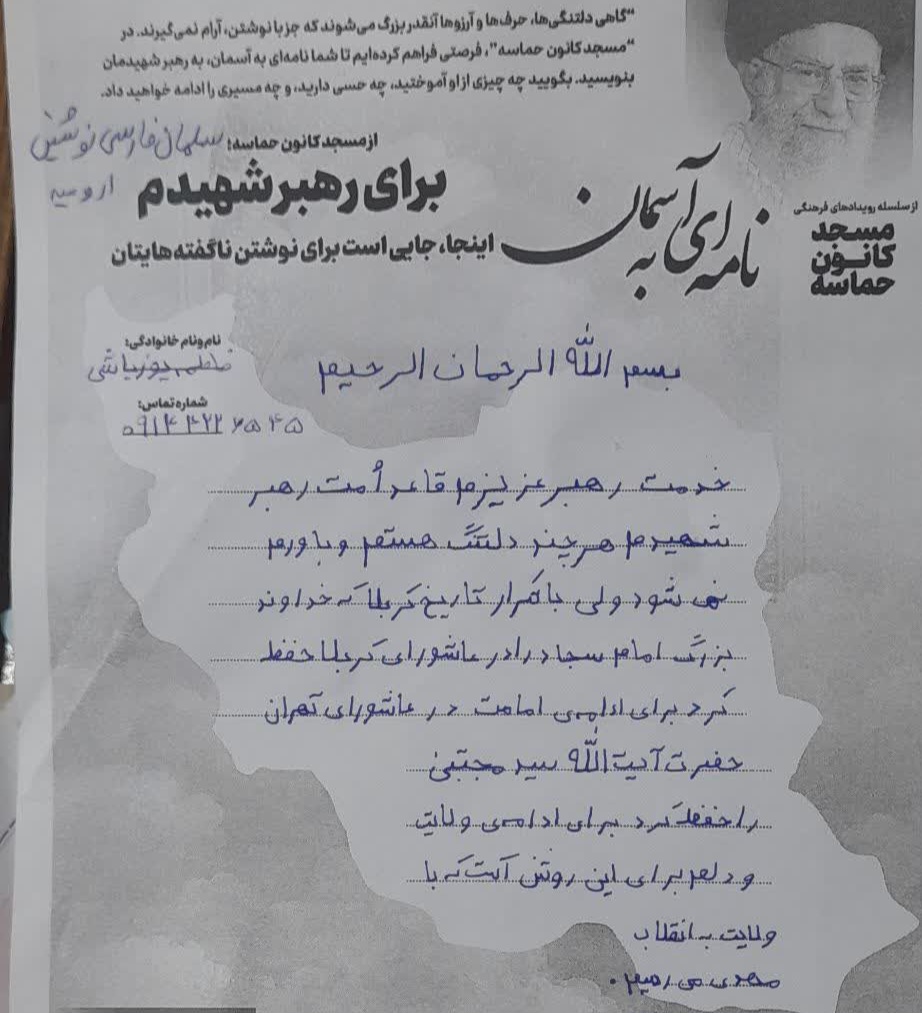 "گاهی دلتنگی‌ها، حرف‌ها و آرزوها آنقدر بزرگ می‌شوند که جز با نوشتن، آرام نمی‌گیرند. در
"مسجد کانون حماسه"، فرصتی فراهم کرده‌ایم تا شما نامه‌ای به آسمان، به رهبر شهیدمان
بنویسید. بگویید چه چیزی از او آموختید، چه حسی دارید، و چه مسیری را ادامه خواهید داد.
از مسجد کانون حماسه: سلمان فارسی نوشین
ارومیه
برای رهبر شهیدم
نامه ای به آسمان
اینجا، جایی است برای نوشتن ناگفته هایتان
از سلسله رویدادهای فرهنگی
مسجد
کانون
حماسه
نام و نام خانوادگی:
فاطمه یوزباشی
شماره تماس:
۰۹۱۴ ۴۲۲ ۷۵۴۵
بسم الله الرحمان الرحیم
خدمت رهبر عزیزم قاعد اُمت رهبر
شهیدم هر چند دلتنگ هستم و باورم
نمی شود ولی با تکرار تاریخ کربلا که خداوند
بزرگ امام سجاد را در عاشورای کربلا حفظ
کرد برای ادامه‌ی امامت در عاشورای تهران
حضرت آیت الله سید مجتبی
را حفظ کرد برای ادامه‌ی ولایت
و دلم برای این روشن است که با
ولایت به انقلاب
مهدی می رسیم.